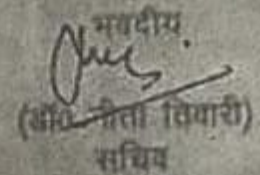 भवदीय
(डॉ0 नीता तिवारी)
सचिव